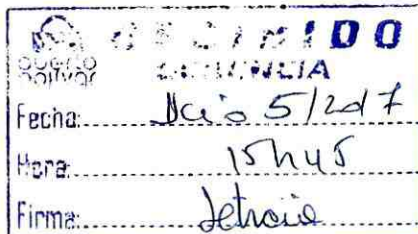 puerto
bolívar
RECIBIDO
GERENCIA
Fecha:
5/2017
Hora:
15h45
Firma: